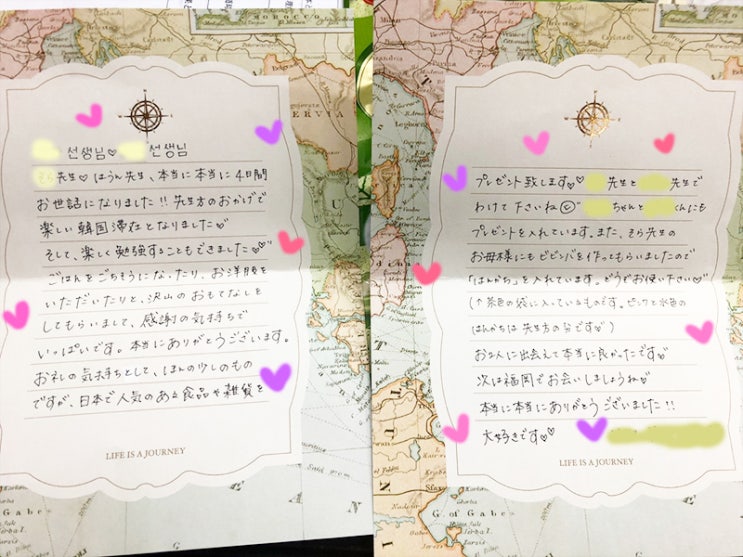 선생님♡ 선생님
先生♡ はうん先生、本当に本当に4日間
お世話になりました!! 先生方のおかげで
楽しい韓国滞在となりました♡
そして、楽しく勉強することもできました♡♡
ごはんをごちそうになったり、お洋服を
いただいたりと、沢山のおもてなしを
してもらいまして、感謝の気持ちで
いっぱいです。本当にありがとうございます。
お礼の気持ちとして、ほんの少しのもの
ですが、日本で人気のある食品や雑貨を
LIFE IS A JOURNEY
プレゼント致します♡♡ 先生と 先生で
わけて下さいね☺ ちゃんと くんにも
プレゼントを入れています。また、そら先生の
お母様にもビビンバを作ってもらいましたので
「はんかち」を入れています。どうぞお使い下さい♡
(↑茶色の袋に入っているものです。ピンクと水色の
はんかちは先生方の分です♡)
お2人に出会えて本当に良かったです♡
次は福岡でお会いしましょうね♡
本当に本当にありがとうございました!!
大好きです♡♡
LIFE IS A JOURNEY
MOROCCO
G. of Gabes